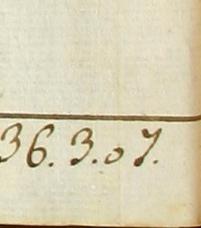 36. 3. 07.